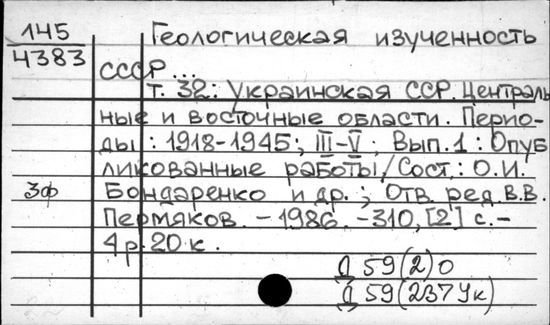 145
4383
Геологическая изученность
СССР...
т. 32: Украинская ССР. Централь
ные и восточные области. Перио-
ды: 1918-1945; III-V; Вып. 1: Опуб
ликованные работы/Сост.: О.И.
3ф Бондаренко и др.; Отв. ред. В.В.
Пермяков. - 1986. - 310, [2] с. -
4 р. 20 к.
Д 59(2)0
Д 59(237Ук)